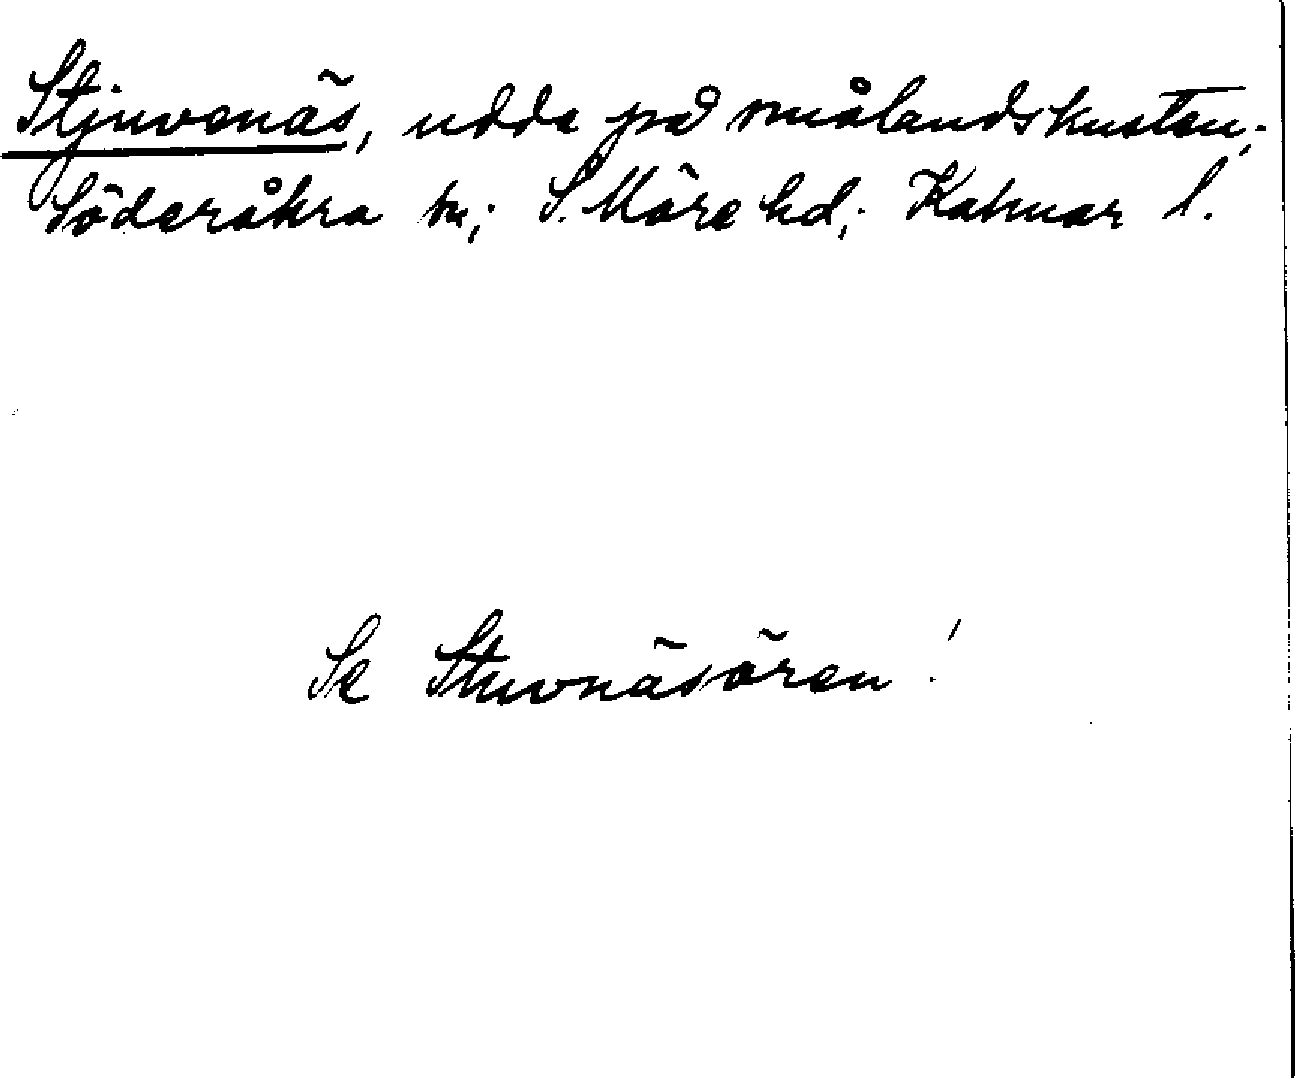 Stjuvenäs, udde på smålandskusten;
Söderåkra sn; S. Möre hd; Kalmar l.
Se Stuvnäsören!